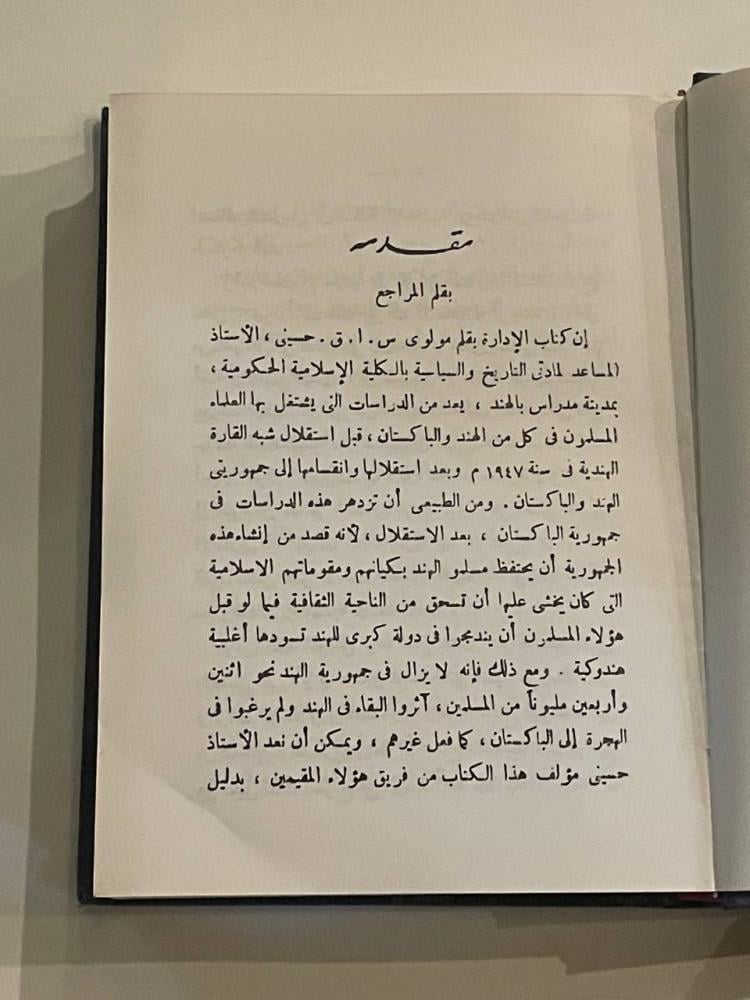 مقدمه
بقلم المراجع
إن كتاب الإدارة بقلم مولوى س . ا . ق . حسينى ، الأستاذ
المساعد لمادتى التاريخ والسياسية بالكلية الإسلامية الحكومية ،
بمدينة مدراس بالهند ، يعد من الدراسات التى يشتغل بها العلماء
المسلمون فى كل من الهند والباكستان ، قبل استقلال شبه القارة
الهندية فى سنة ١٩٤٧ م وبعد استقلالها وانقسامها إلى جمهوريتى
الهند والباكستان . ومن الطبيعى أن تزدهر هذه الدراسات فى
جمهورية الباكستان ، بعد الاستقلال ، لأنه قصد من إنشاء هذه
الجمهورية أن يحتفظ مسلمو الهند بكيانهم ومقوماتهم الاسلامية
التى كان يخشى عليها أن تسحق من الناحية الثقافية فيما لو قبل
هؤلاء المسلمون أن يندمجوا فى دولة كبرى للهند تسودها أغلبية
هندوكية . ومع ذلك فإنه لا يزال فى جمهورية الهند نحو اثنين
وأربعين مليوناً من المسلمين ، آثروا البقاء فى الهند ولم يرغبوا فى
الهجرة إلى الباكستان ، كما فعل غيرهم ، ويمكن أن نعد الأستاذ
حسينى مؤلف هذا الكتاب من فريق هؤلاء المقيمين ، بدليل